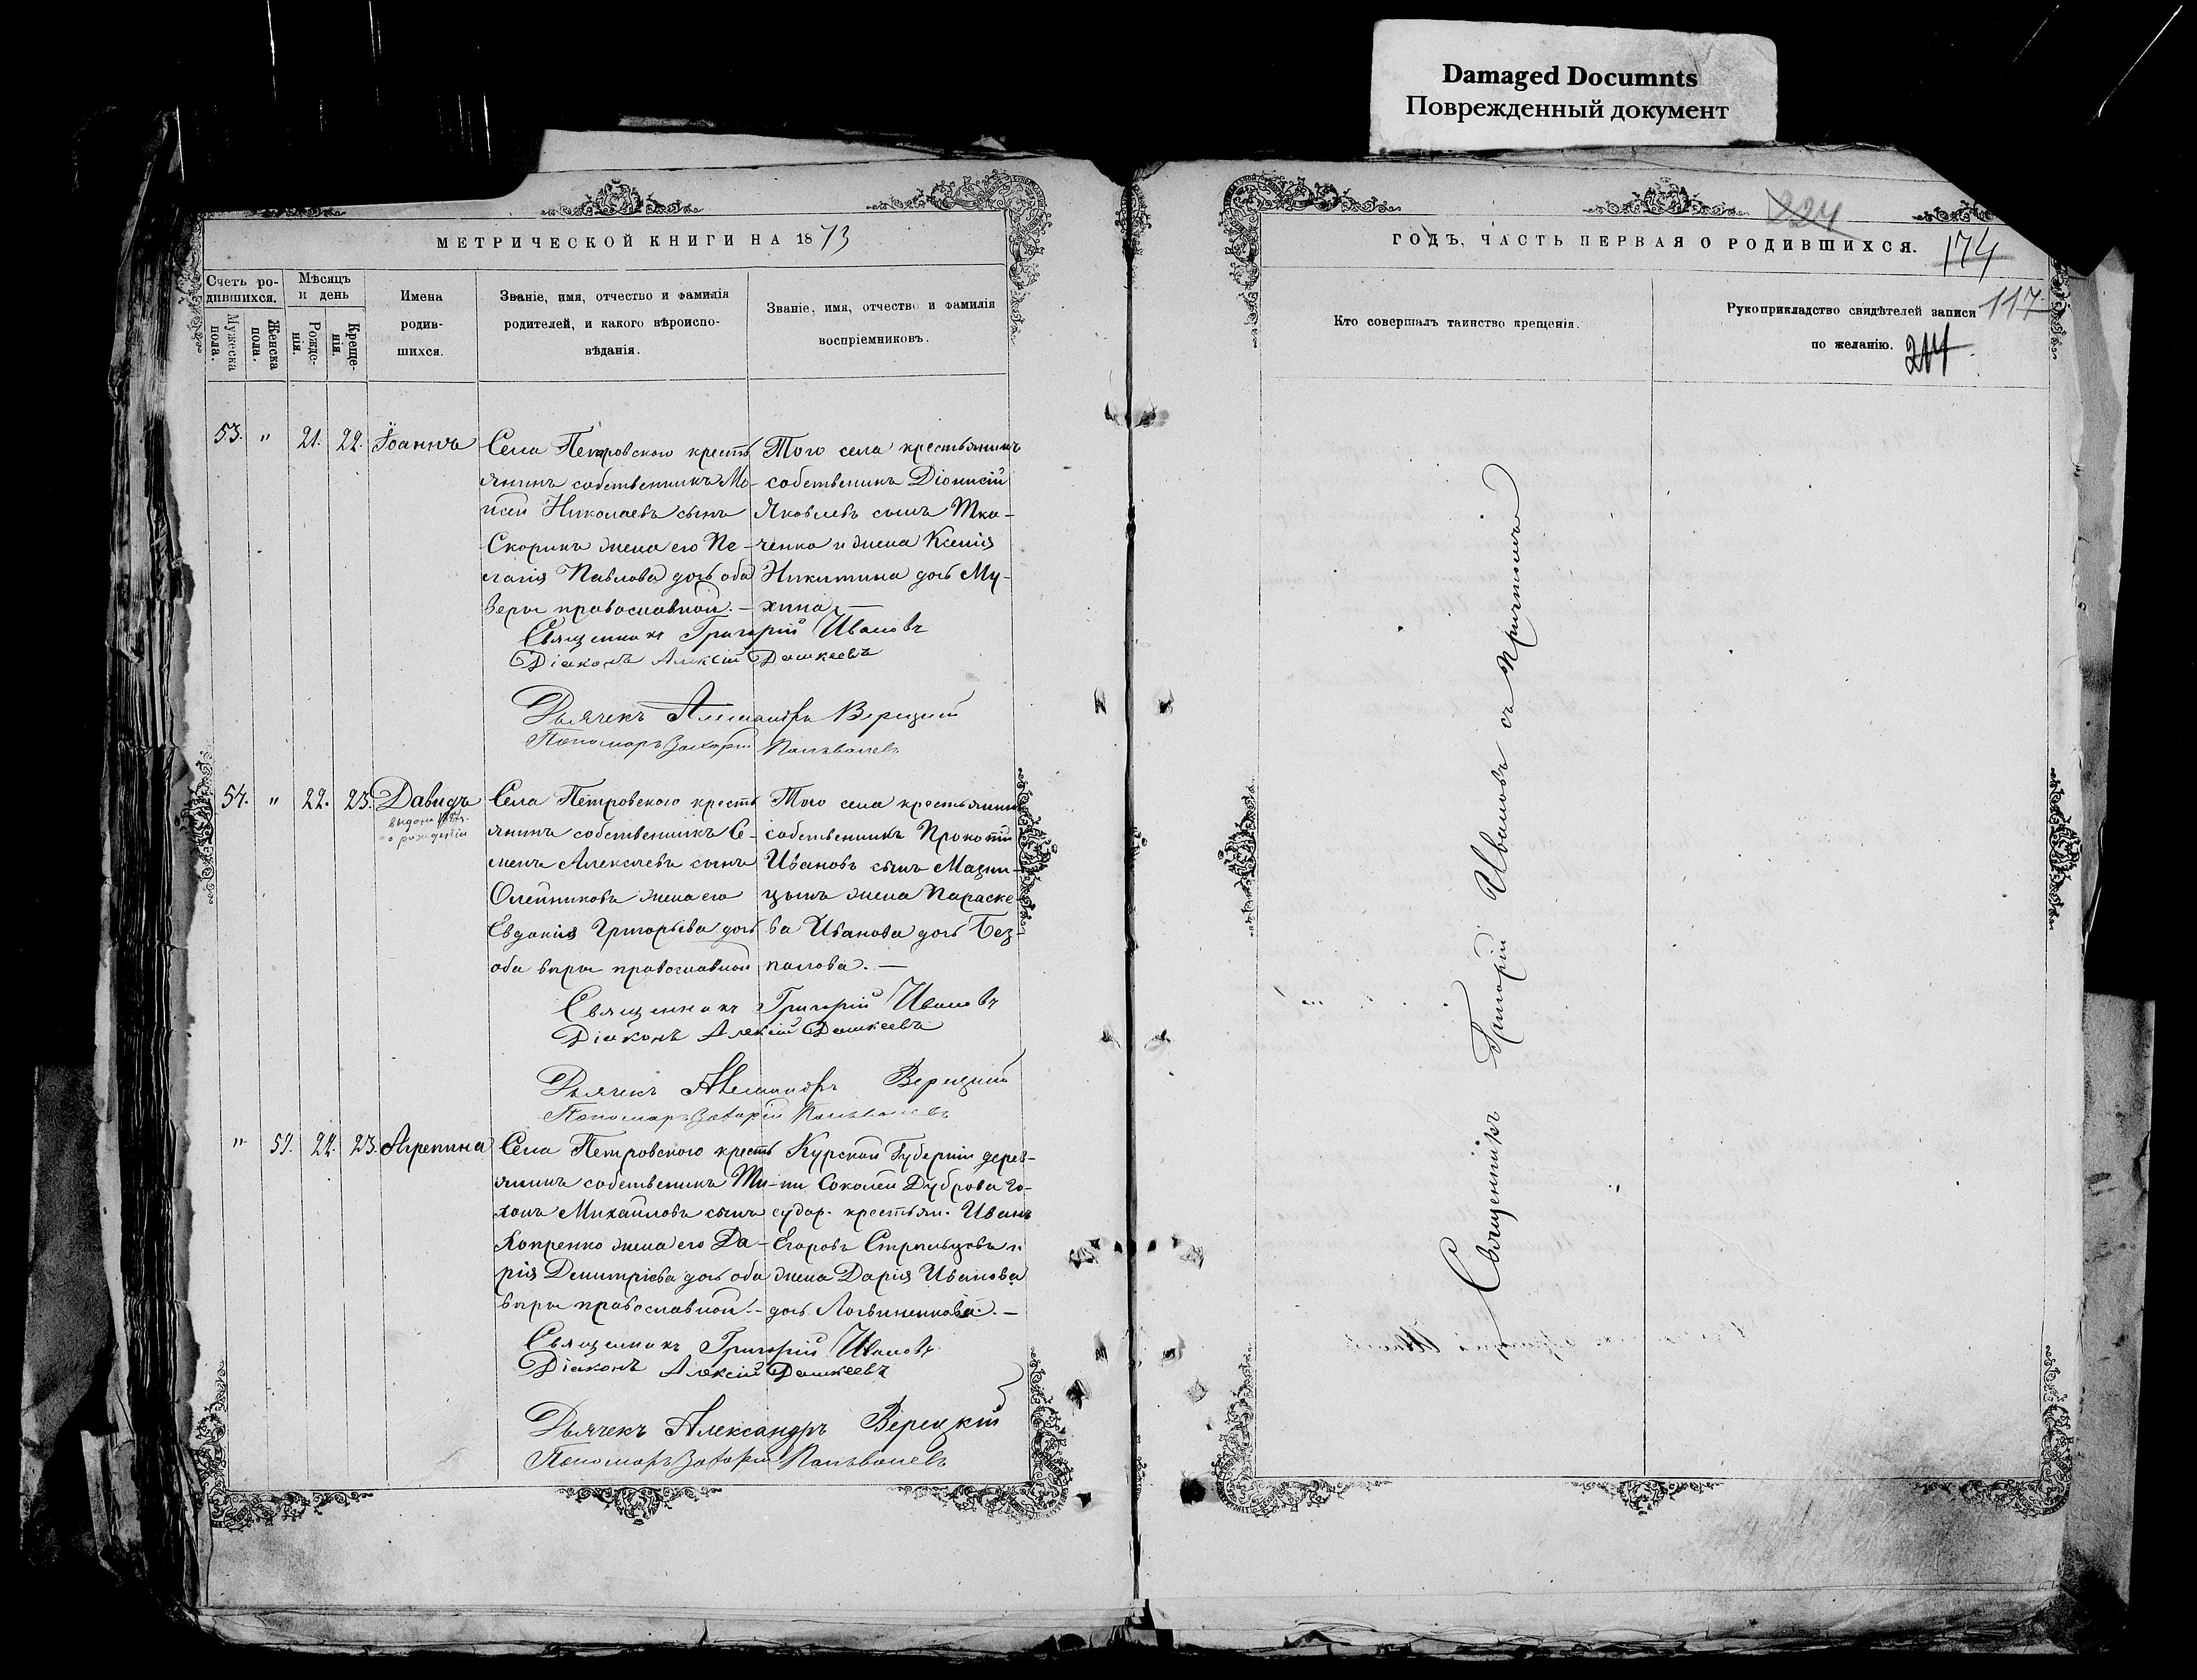 Damaged Documnts
Поврежденный документ
МЕТРИЧЕСКОЙ КНИГИ НА 1873
Счетъ ро-
дившихся.
Мужеска пола.
Женска пола.
Мѣсяцъ
и день
Рожде-
нія.
Креще-
нія.
Имена
родив-
шихся.
Званіе, имя, отчество и фамилія
родителей, и какого вѣроиспо-
вѣданія.
Званіе, имя, отчество и фамилія
воспріемниковъ.
53. " 21. 22. Іоаннъ
Села Петровского кресть
янинъ собственникъ Мо-
исей Николаевъ сынъ
Скорикъ жена его Пе-
лагія Павлова дочь оба
веры православной. –
Того села крестьянинъ
собственикъ Діонисій
Яковлевъ сынъ Тка-
ченко и жена Ксенія
Никитина дочь Му-
хина. –
Священникъ Григорій Ивановъ
Діаконъ Алексій Дашкеевъ
Дьячекъ Александръ Верецкій
Пономарь Захарій
54. " 22. 23. Давидъ
выдана
о рожденіи
Села Петровского кресть
янинъ собственникъ Се-
менъ Алексѣевъ сынъ
Олейниковъ жена его
Евдокія Григорьева дочь
оба вѣры православной
Того села крестьянинъ
собственникъ Прокопій
Ивановъ сынъ Мазни-
цынъ жена Параске-
ва Иванова дочь Без-
палова. –
Священникъ Григорій Ивановъ
Діаконъ Алексій Дашкеевъ
Дьячекъ Александръ Верецкій
Пономарь Захарій
" 51. 22. 23. Агрепина
Села Петровского кресть
янинъ собственикъ Ти-
хонъ Михаиловъ сынъ
Копренко жена его Да-
рія Димитріева дочь оба
вѣры православной. –
Курской Губерніи дерев-
ни Соколей Дубровы го-
судар. крестьян. Иванъ
Егоровъ Стрельцовъ и
жена Дарія Иванова
дочь Логвиненкова. –
Священникъ Григорій Ивановъ
Діаконъ Алексій Дашкеевъ
Дьячекъ Александръ Верецкій
Пономарь Захарій
ГОДЪ, ЧАСТЬ ПЕРВАЯ О РОДИВШИХСЯ.
224
174
117
214
Кто совершалъ таинство крещенія.
Рукоприкладство свидѣтелей записи
по желанію.
Священникъ Григорій Ивановъ съ Причтомъ